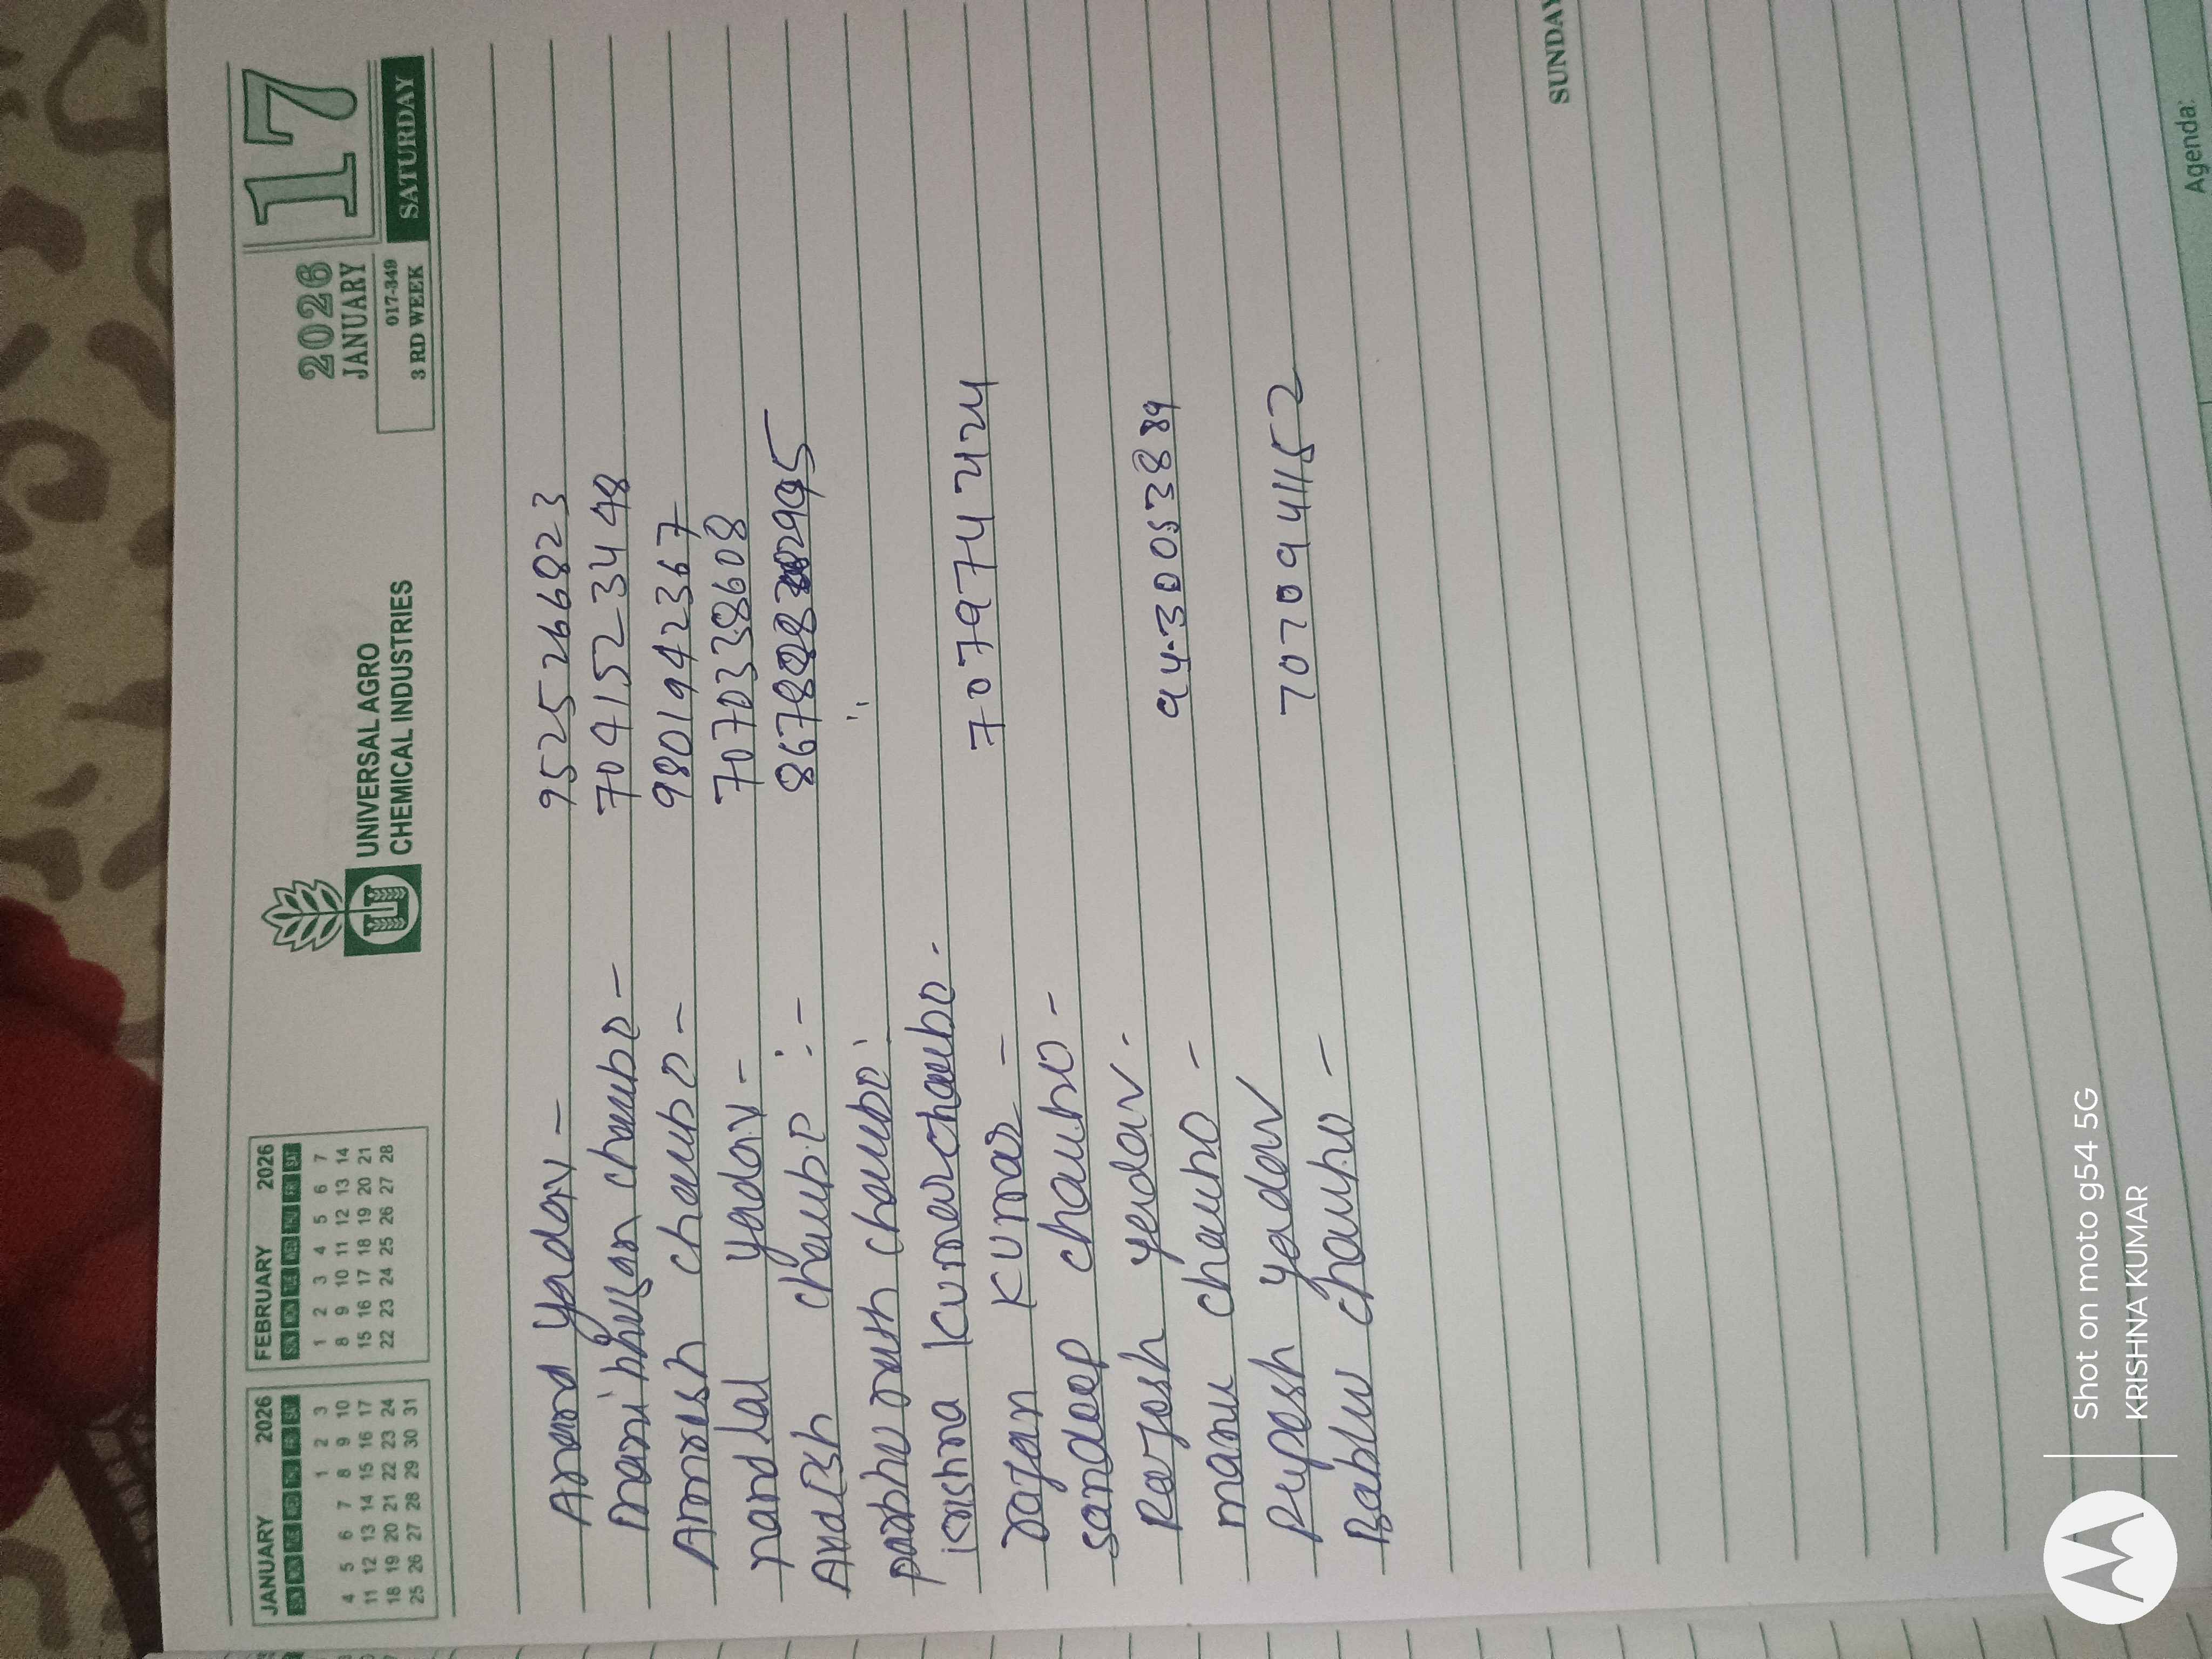 JANUARY 2026
SUN MON TUE WED THU FRI SAT
1 2 3
4 5 6 7 8 9 10
11 12 13 14 15 16 17
18 19 20 21 22 23 24
25 26 27 28 29 30 31
FEBRUARY 2026
SUN MON TUE WED THU FRI SAT
1 2 3 4 5 6 7
8 9 10 11 12 13 14
15 16 17 18 19 20 21
22 23 24 25 26 27 28
UNIVERSAL AGRO
CHEMICAL INDUSTRIES
2026
JANUARY
017-349
3 RD WEEK
17
SATURDAY
Anand yadav - 9525266823
manibhusan chaubo - 7041523448
Amresh chaubo - 9801942367
nandlal yadav - 7070338608
chaubo :-
prabhu nath chaubo
krishna kumar chaubo -
rajan kumar - 7079747424
sandeep chaubo -
Rajesh yadav - 9430053889
manu chaubo -
Rupesh yadav 7070941152
Bablu chaubo -
SUNDAY
Agenda:
Shot on moto g54 5G
KRISHNA KUMAR